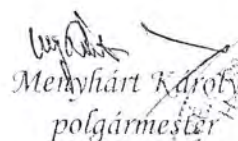 Menyhárt Károly
polgármester